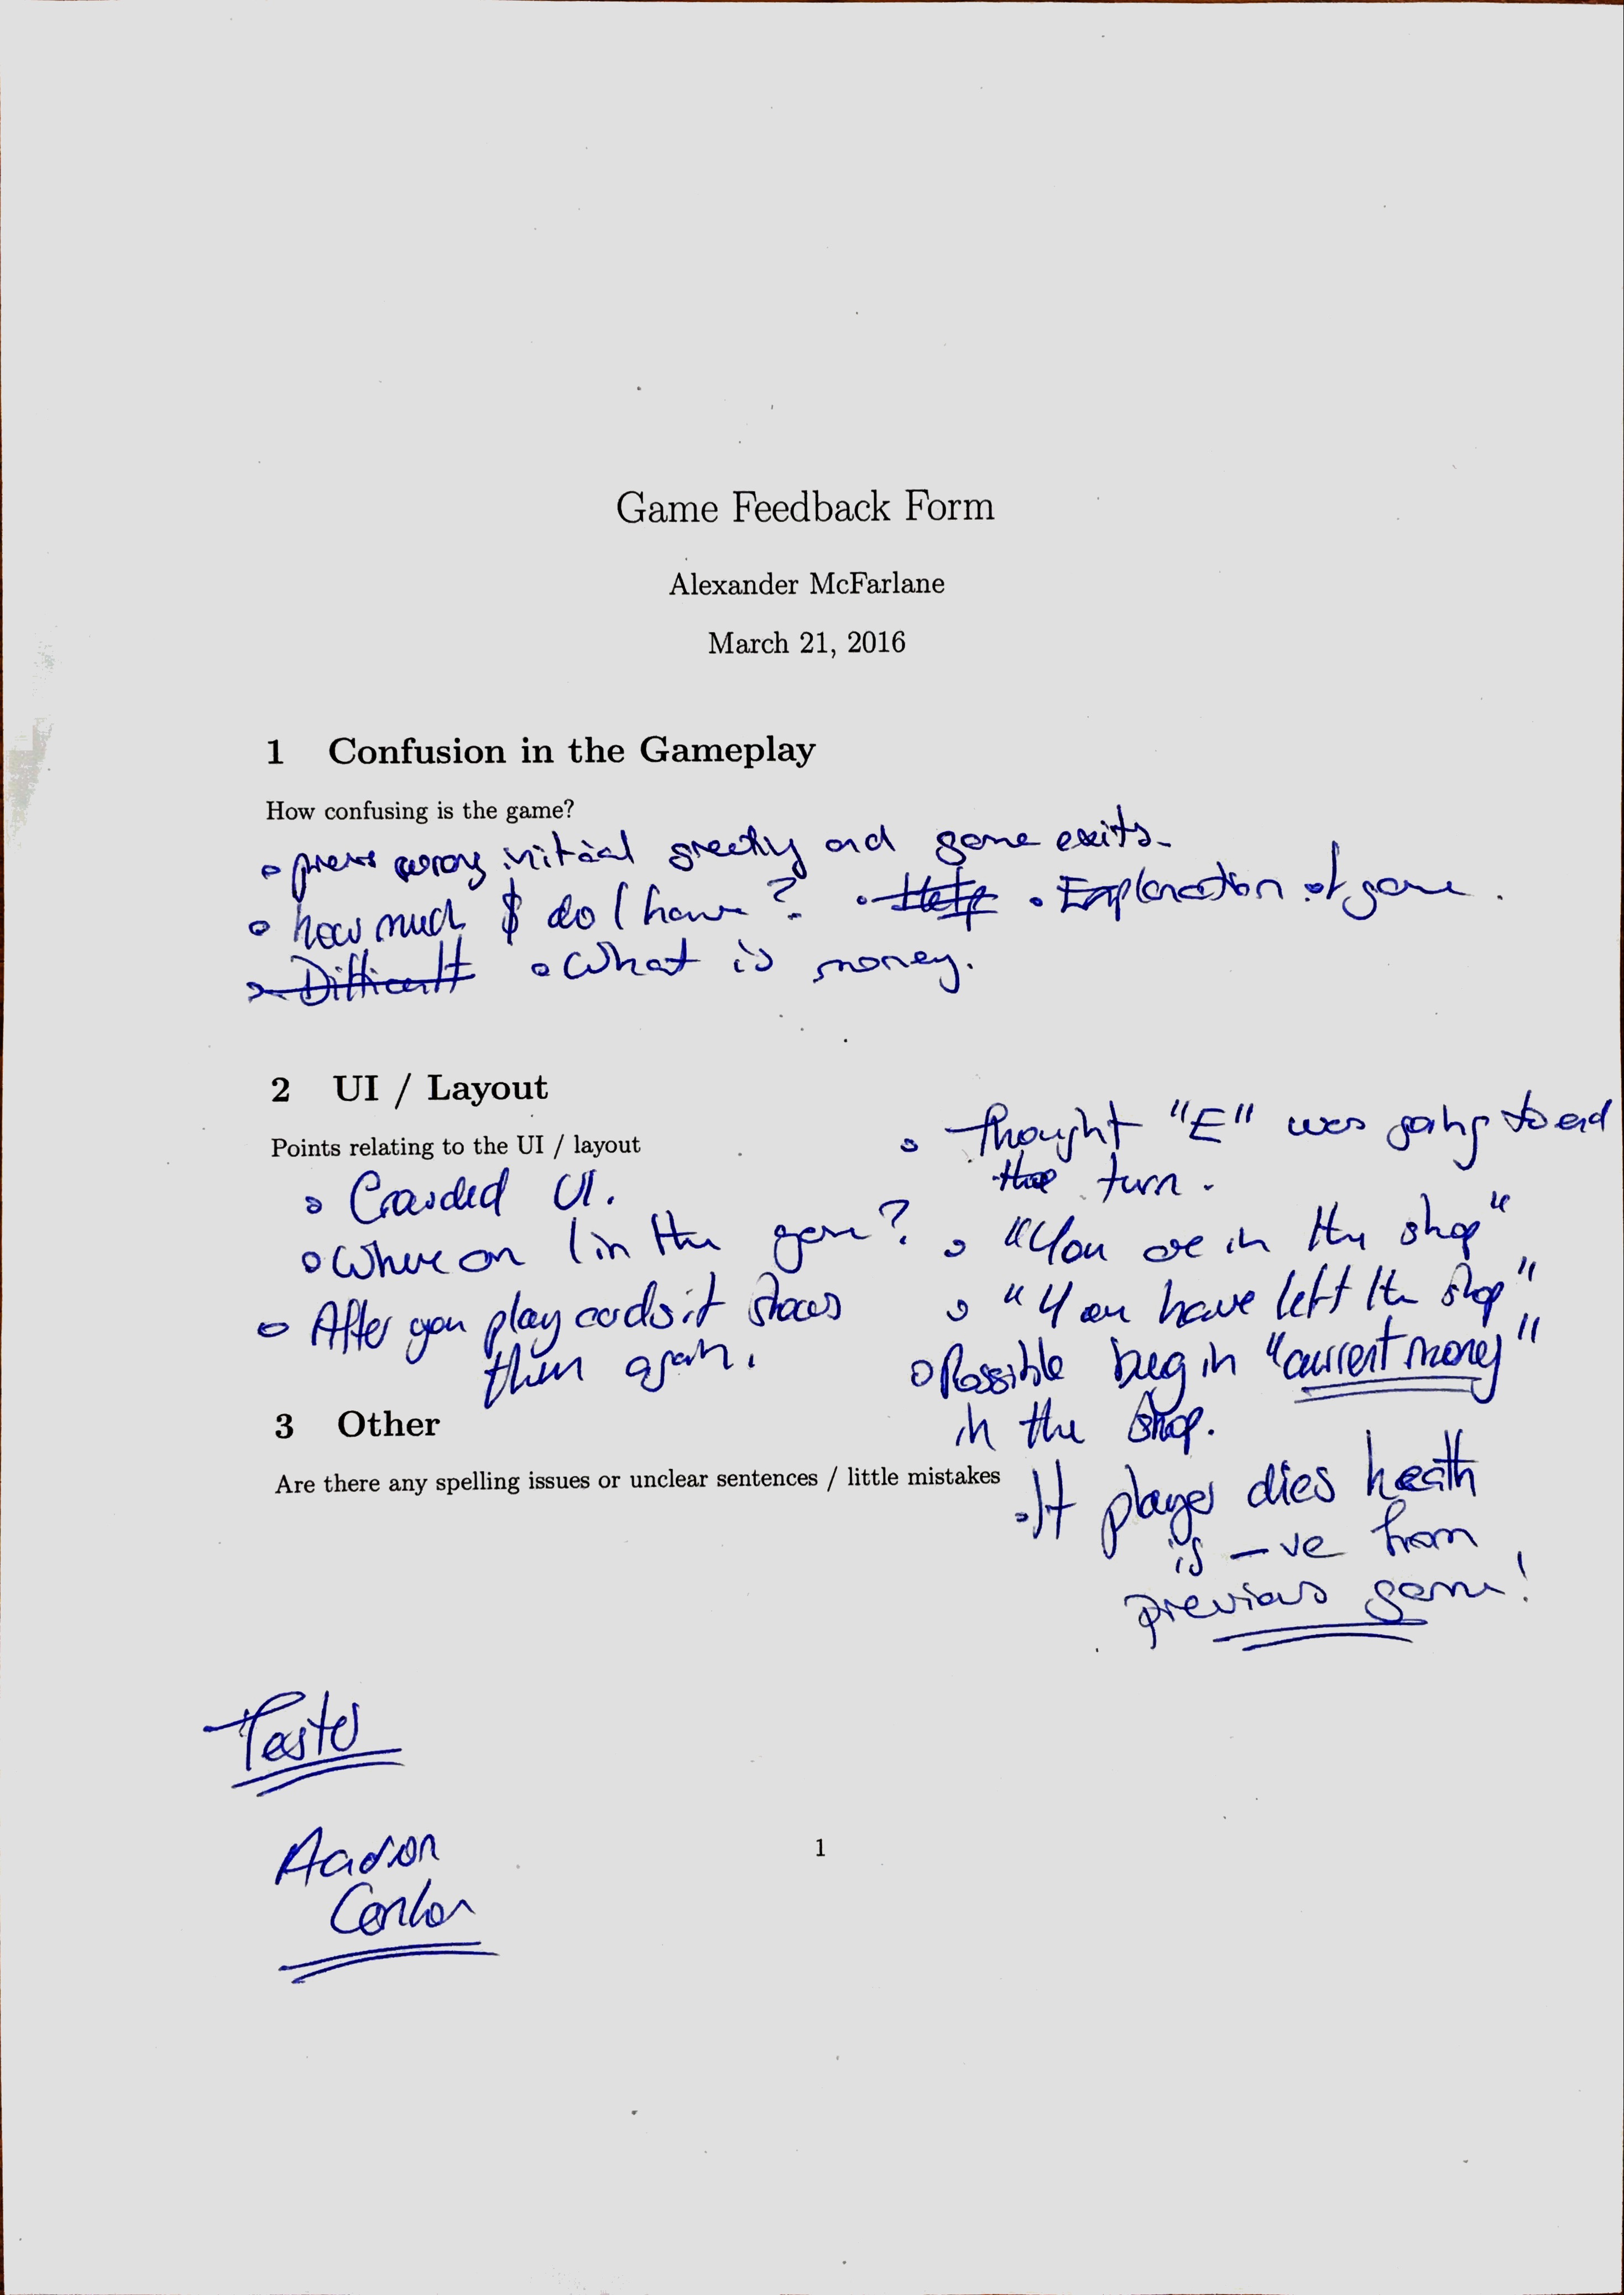 Game Feedback Form
Alexander McFarlane
March 21, 2016
1 Confusion in the Gameplay
How confusing is the game?
• press wrong initial greeting and game exits.
• how much $ do I have? • Help • Explanation of game.
• Difficult • What is money.
2 UI / Layout
Points relating to the UI / layout
• Crowded UI.
• Where am I in the game?
• After you play cards it shows
them again.
• thought "E" was going to end
the turn.
• "You are in the shop"
• "You have left the shop"
• Possible bug in "current money"
in the shop.
3 Other
Are there any spelling issues or unclear sentences / little mistakes
• If player dies health
is -ve from
previous game!
Tester
Conlon
1